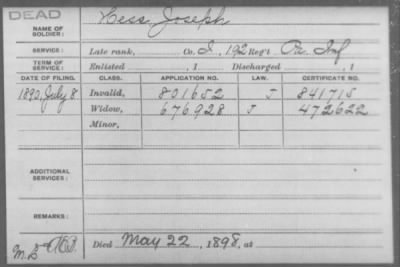 DEAD
NAME OF SOLDIER: Hess, Joseph
SERVICE: Late rank, Co. I, 192 Reg't Pa. Inf
TERM OF SERVICE: Enlisted , 1 Discharged , 1
DATE OF FILING. CLASS. APPLICATION NO. LAW. CERTIFICATE NO.
1890, July 8 Invalid, 801652 J 841715
Widow, 676928 J 472622
Minor,
ADDITIONAL SERVICES:
REMARKS:
M.B
Died May 22, 1898, at